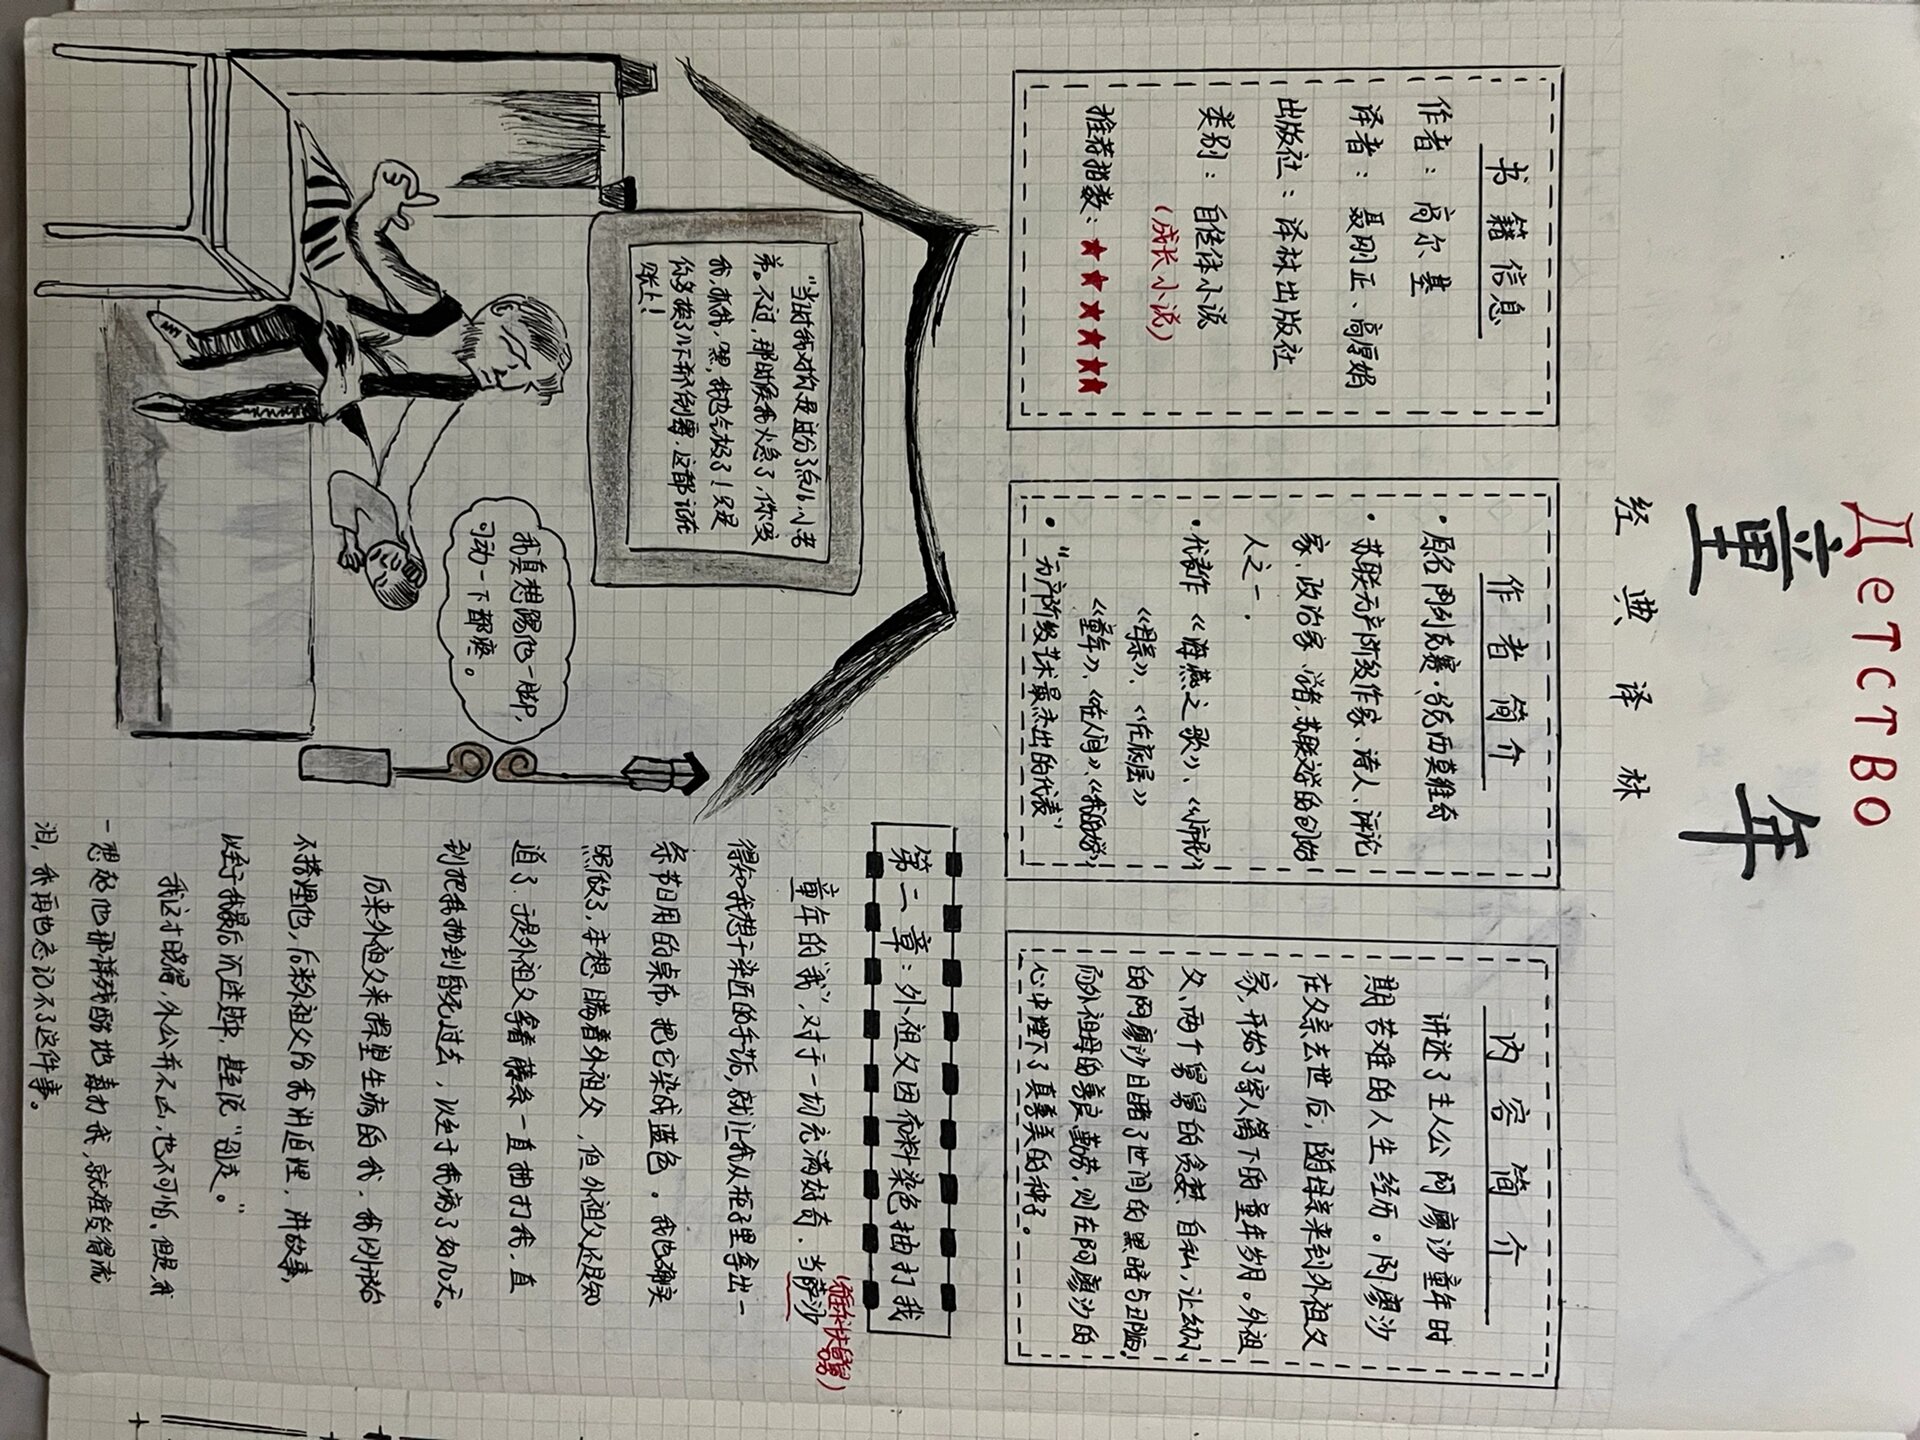 Детство
童年
经典译林
书籍信息
作者：高尔基
译者：聂刚正、高厚娟
出版社：译林出版社
类别：自传体小说
（成长小说）
推荐指数：★★★★★★
作者简介
·原名阿列克赛·
·苏联无产阶级作家、诗人、评论
家、政治家、学者，苏联文学的创始
人之一.
·代表作《海燕之歌》、《忏悔》
《母亲》、《在底层》
《童年》、《在人间》、《我的大学》
·"无产阶级艺术最杰出的代表"
内容简介
讲述了主人公阿廖沙童年时
期苦难的人生经历。阿廖沙
在父亲去世后，随母亲来到外祖父
家，开始了寄人篱下的童年岁月。外祖
父、两个舅舅的贪婪、自私，让幼小
的阿廖沙目睹了世间的黑暗与丑陋.
而外祖母的善良、勤劳，则在阿廖沙的
心中埋下了真善美的种子。
"当时我对你是过分了点儿，小老
弟。不过，那时候我火急了，你咬
我，抓我，嘿，我也气极了！只是
你多挨了几下不算倒霉，这都记在
账上！
我真想踢他一脚，
可动一下都疼。
第二章：外祖父因布料染色抽打我
童年的"我"，对于一切充满好奇. 当萨沙
（雅科夫舅舅）
得知我想干染匠的手艺活，就让我从柜子里拿出一
条节日用的桌布，把它染成蓝色. 我也确实
照做了，本想瞒着外祖父，但外祖父还是知
道了. 于是外祖父拿着藤条一直抽打我，直
到把我抽到昏死过去，以至于我病了好几天。
后来外祖父来探望生病的我，我刚开始
不搭理他，后来外祖父给我讲道理，讲故事，
以至于我最后沉迷进去，甚至说"别走。"
我这才晓得，外公并不凶，也不可怕. 但是，我
一想起他那样残酷地毒打我，就难受得流
泪，我再也忘记不了这件事。